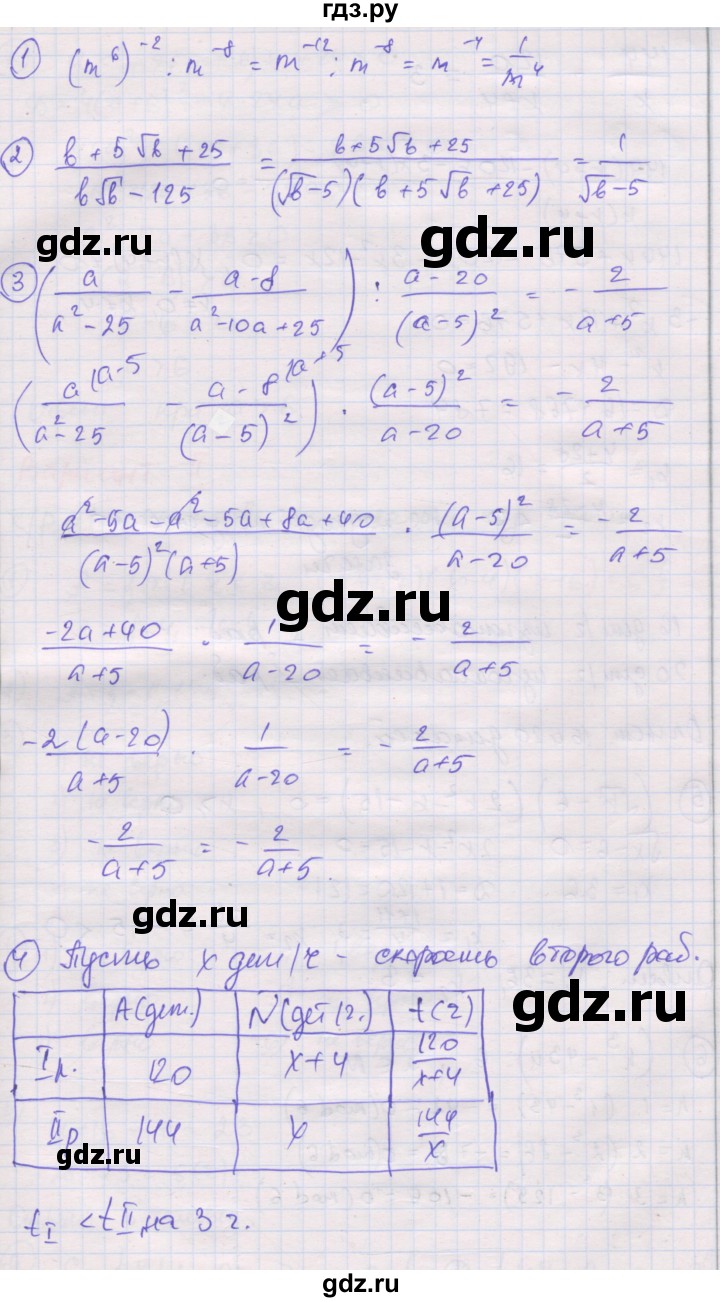 гдз.ру
1 (m^6)^-2 : m^-8 = m^-12 : m^-8 = m^-4 = 1/m^4
2 (b + 5√b + 25)/(b√b - 125) = (b + 5√b + 25)/((√b - 5)(b + 5√b + 25)) = 1/(√b - 5)
gdz.ru
gdz.ru
3 (a/(a^2 - 25) - (a - 8)/(a^2 - 10a + 25)) : (a - 20)/(a - 5)^2 = - 2/(a + 5)
(a |a - 5/(a^2 - 25) - a - 8 |a + 5/(a - 5)^2) · (a - 5)^2/(a - 20) = - 2/(a + 5)
(a^2 - 5a - a^2 - 5a + 8a + 40)/((a - 5)^2 (a + 5)) · (a - 5)^2/(a - 20) = - 2/(a + 5)
gdz.ru
(-2a + 40)/(a + 5) · 1/(a - 20) = - 2/(a + 5)
-2(a - 20)/(a + 5) · 1/(a - 20) = - 2/(a + 5)
- 2/(a + 5) = - 2/(a + 5).
gdz.ru
4 Пусть x дет/ч - скорость второго раб.
gdz.ru
A(дет.) N(дет/ч.) t(ч)
I р. 120 x + 4 120/(x + 4)
II р 144 x 144/x
gdz.ru
t I < t II на 3 ч.
gdz.ru